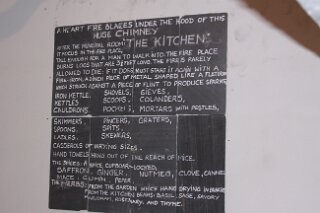 A HEART FIRE BLAZES UNDER THE HOOD OF THIS
HUGE CHIMNEY
AFTER THE MUNICIPAL ROOM "THE KITCHEN"
IT FOCUS IN THE FIRE PLACE,
TALL ENOUGH FOR A MAN TO WALK INTO. THE FIRE PLACE
BURNS LOGS THAT ARE 3FEET LONG. THE FIRE IS RARELY
ALLOWED TO DIE. IF IT DOES, MUST START IT AGAIN WITH A
FIRE-IRON, A PIECE OF METAL SHAPED LIKE A
WHICH STRUCK AGAINST A PIECE OF FLINT TO PRODUCE SPARKS.
IRON KETTLE, SHOVELS, SIEVES,
KETTLES SCOOPS, COLANDERS,
CAULDRONS, MORTARS WITH PESTLES,
SKIMMERS PINCERS, GRATERS,
SPOONS, SPITS,
LADLES, SKEWERS,
CASSEROLS OF VARYING SIZES.
HAND TOWELS HUNG OUT OF THE REACH OF MICE.
THE SPICES: A SPICE CUPBOARD-LOCKED,
SAFFRON, GINGER, NUTMEG, CLOVE, CANNEL
MACE, CUMIN, PEPER.
THE HERBS: FROM THE GARDEN WHICH HANG DRYING IN BUNCHES
FROM THE KITCHEN BEAMS: BASIL, SAGE, SAVORY
MARJORAM, ROSEMARY, AND THYME.